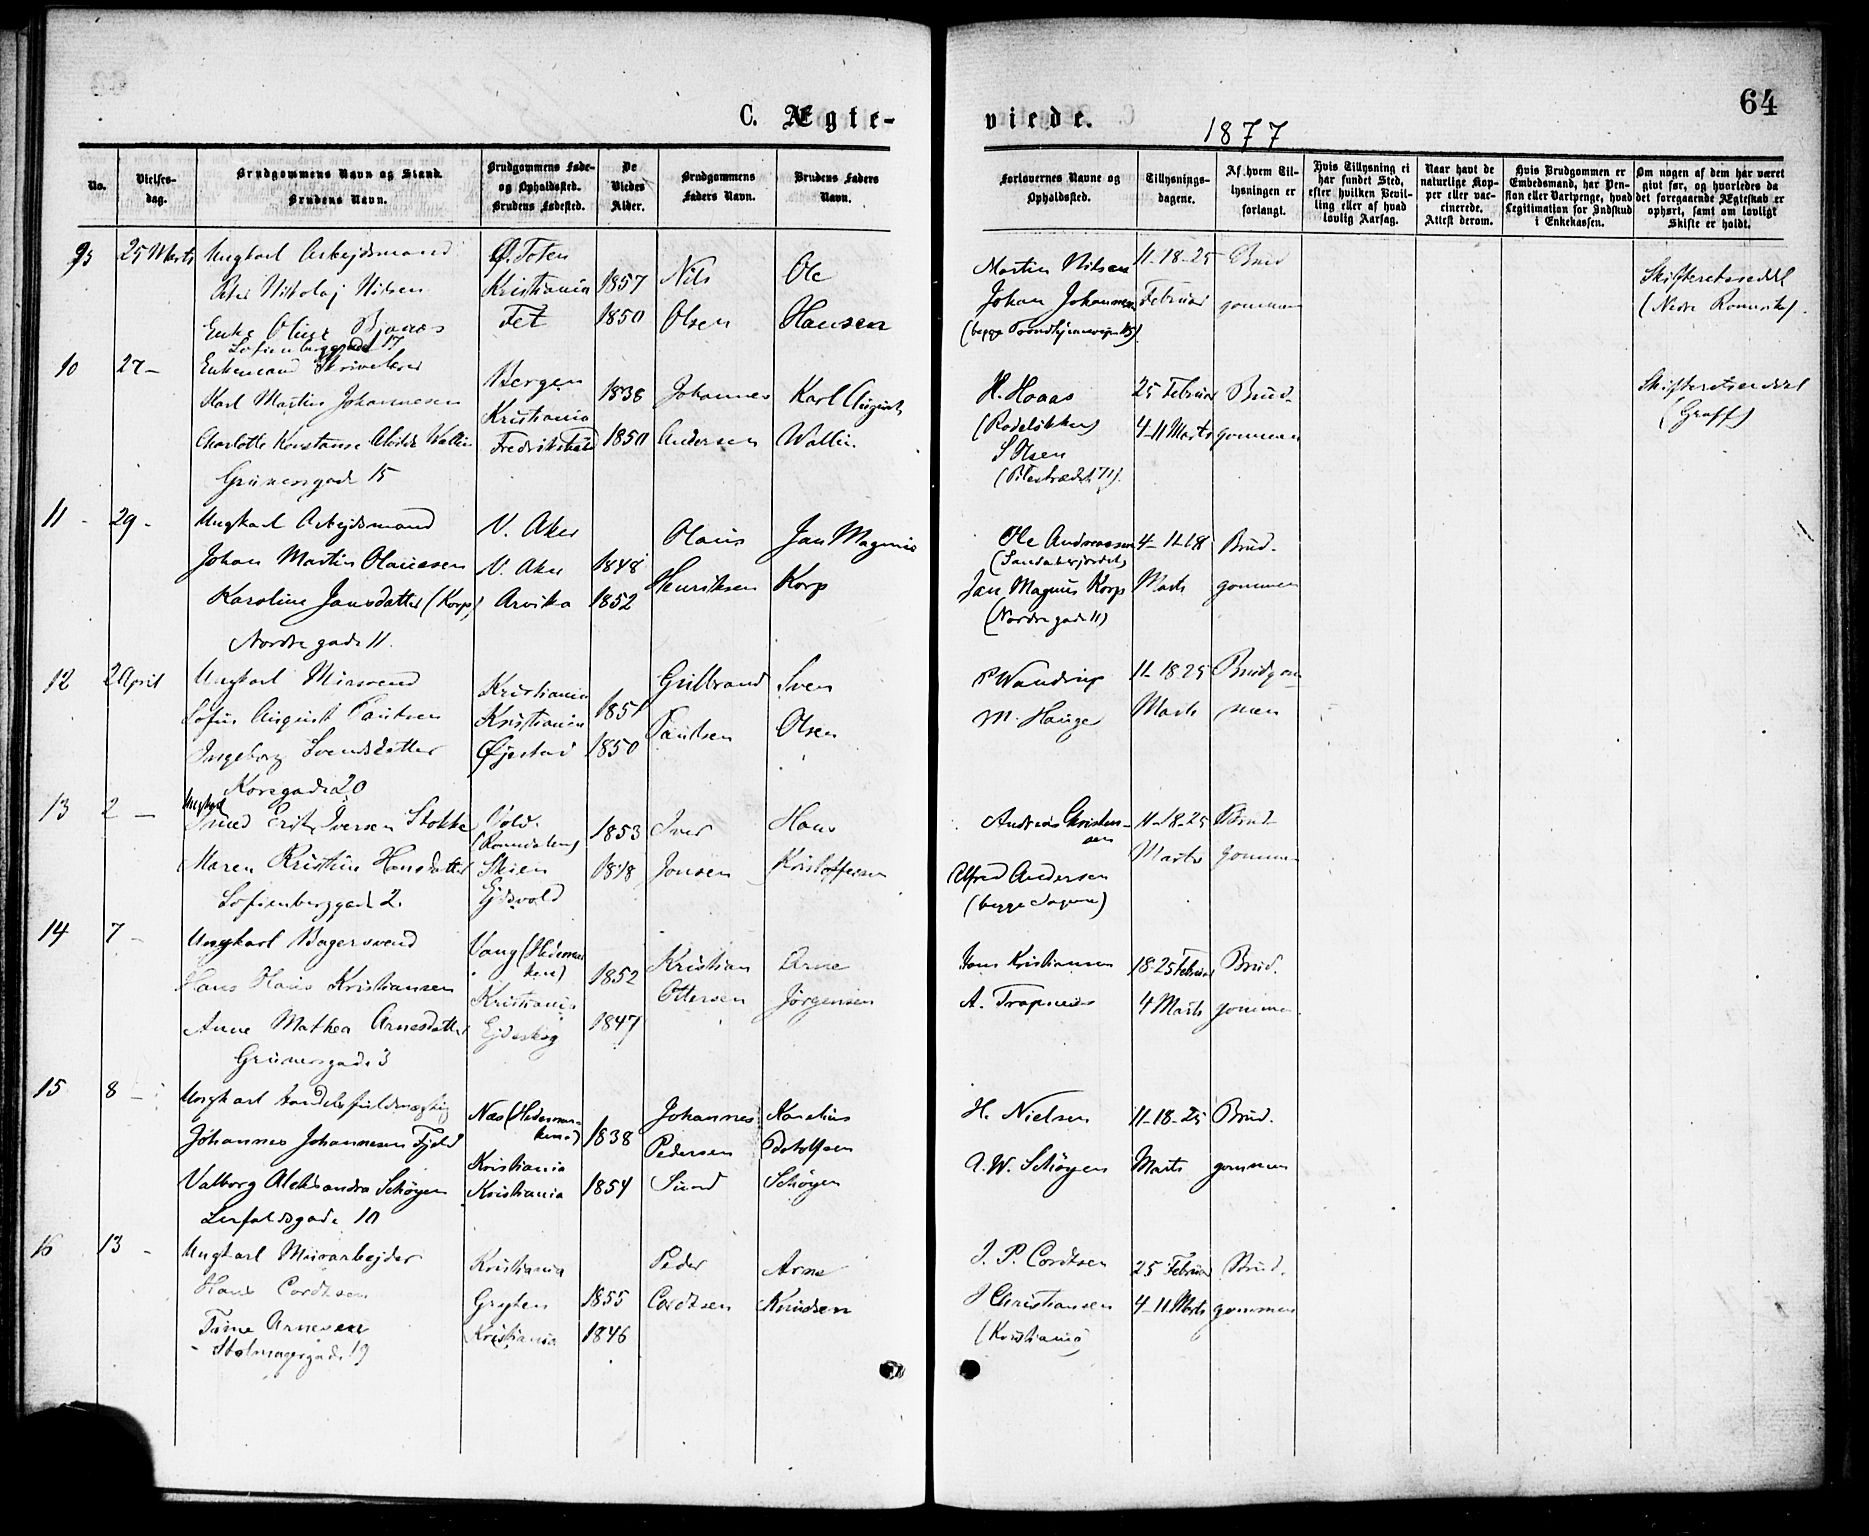 C. Ægte-
viede.
1877
64
No.
Vielses-
dag.
Brudgommens Navn og Stand.
Brudens Navn.
Brudgommens Føde-
og Opholdssted.
Brudens Fødested.
De
Viedes
Alder.
Brudgommens
Faders Navn.
Brudens Faders
Navn.
Forlovernes Navne og
Opholdssted.
Tillysnings-
dagene.
Af hvem Til-
lysningen er
forlangt.
Hvis Tillysning ei
har fundet Sted,
efter hvilken Bevil-
ling eller af hvad
lovlig Aarsag.
Naar havt de
naturlige Kop-
per eller vac-
cinerede.
Attest derom.
Hvis Brudgommen er
Embedsmand, har Pen-
sion eller Vartpenge, hvad
Legitimation for Indskud
i Enkekassen.
Om nogen af dem har været
givt før, og hvorledes da
det foregaaende Ægteskab er
ophørt, samt om lovligt
Skifte er holdt.
25 Marts
Ungkarl Arbejdsmand
Peter Nikolaj Nilsen
Enke Oline
Sofienberggade 17
Ø. Toten
Kristiania
Fet
1857
1850
Nils
Olsen
Ole
Hansen
Martin Nilsen
Johan Johannesen
11-18-25
Februar
Brud
gommen
Skifteretsseddel
10
27 -
Enkemand
Karl Martin Johannesen
Charlotte Konstanse Wallin
Grünersgade 15
Bergen
Kristiania
Fredrikstad
1838
1850
Johannes
Andersen
Karl August
Wallin
H. Haaas
(Rodeløkken)
S Olsen
(Pilestrædet 71).
25 Februar
4-11 Marts
Brud-
gommen
Skifteretsseddel
(Graff)
11 -
29 -
Ungkarl Arbejdsmand
Johan Martin Olausen
Karoline Jansdatter (Korp)
Nordregade 11.
V. Aker
V. Aker
Arvika
1848
1852
Olaus
Henriksen
Jan Magnus
Korp
Ole Andreassen
Jan Magnus Korp
(Nordregade 11)
4-11-18
Marts
Brud-
gommen
12
2 April
Ungkarl Mursvend
Sofus August Paulsen
Ingeborg Svendsdatter
Korsgade 20
Kristiania
Kristiania
Øjestad
1851
1850
Gulbrand
Paulsen
Sven
Olsen
P Wandrup
M. Hauger
11-18-25
Marts
Brudgom-
men
13
2 -
Ungkarl
Iversen Stokke
Maren Kristine Hansdatter
Sofienberggade 2.
Vold.
(Romsdalen)
Skien
Ejdsvold
1853
1848
Iver
Jonsen
Hans
Kristoffersen
Andreas Christen-
sen
Alfred Andersen
(begge Sagene)
11-18-25
Marts
Brud-
gommen
14
7 -
Ungkarl Bagersvend
Hans Kristiansen
Anne Mathea Arnesdatter
Grünersgade 3
Vang (Hedemar-
ken)
Kristiania
Ejdskog
1852
1847
Kristian
Ottersen
Arne
Jørgensen
Hans Kristiansen
A. Trapness
18-25 Februar
4 Marts
Brud.
gommen.
15
8 -
Ungkarl Handelsfuldmægtig
Johannes Johannesen Fjeld
Valborg Aleksandra Schøyen
Lerfaldsgade 10
Næs (Hedemar-
ken)
Kristiania
Kristiania
1838
1854
Johannes
Pedersen
Sund
Karelius
Schøyen
H. Nielsen
A. W. Schøyen
11-18-25
Marts
Brud.
gommen
16
13 -
Ungkarl Murarbejder
Hans Cordtsen
Arnesen
Stolmagergade 19
Kristiania
Gryten
Kristiania
1855
1846
Peder
Cordtsen
Arne
Knudsen
J. P. Cordtsen
J Christiansen
(Kristiania)
25 Februar
4-11 Marts
Brud.
gommen